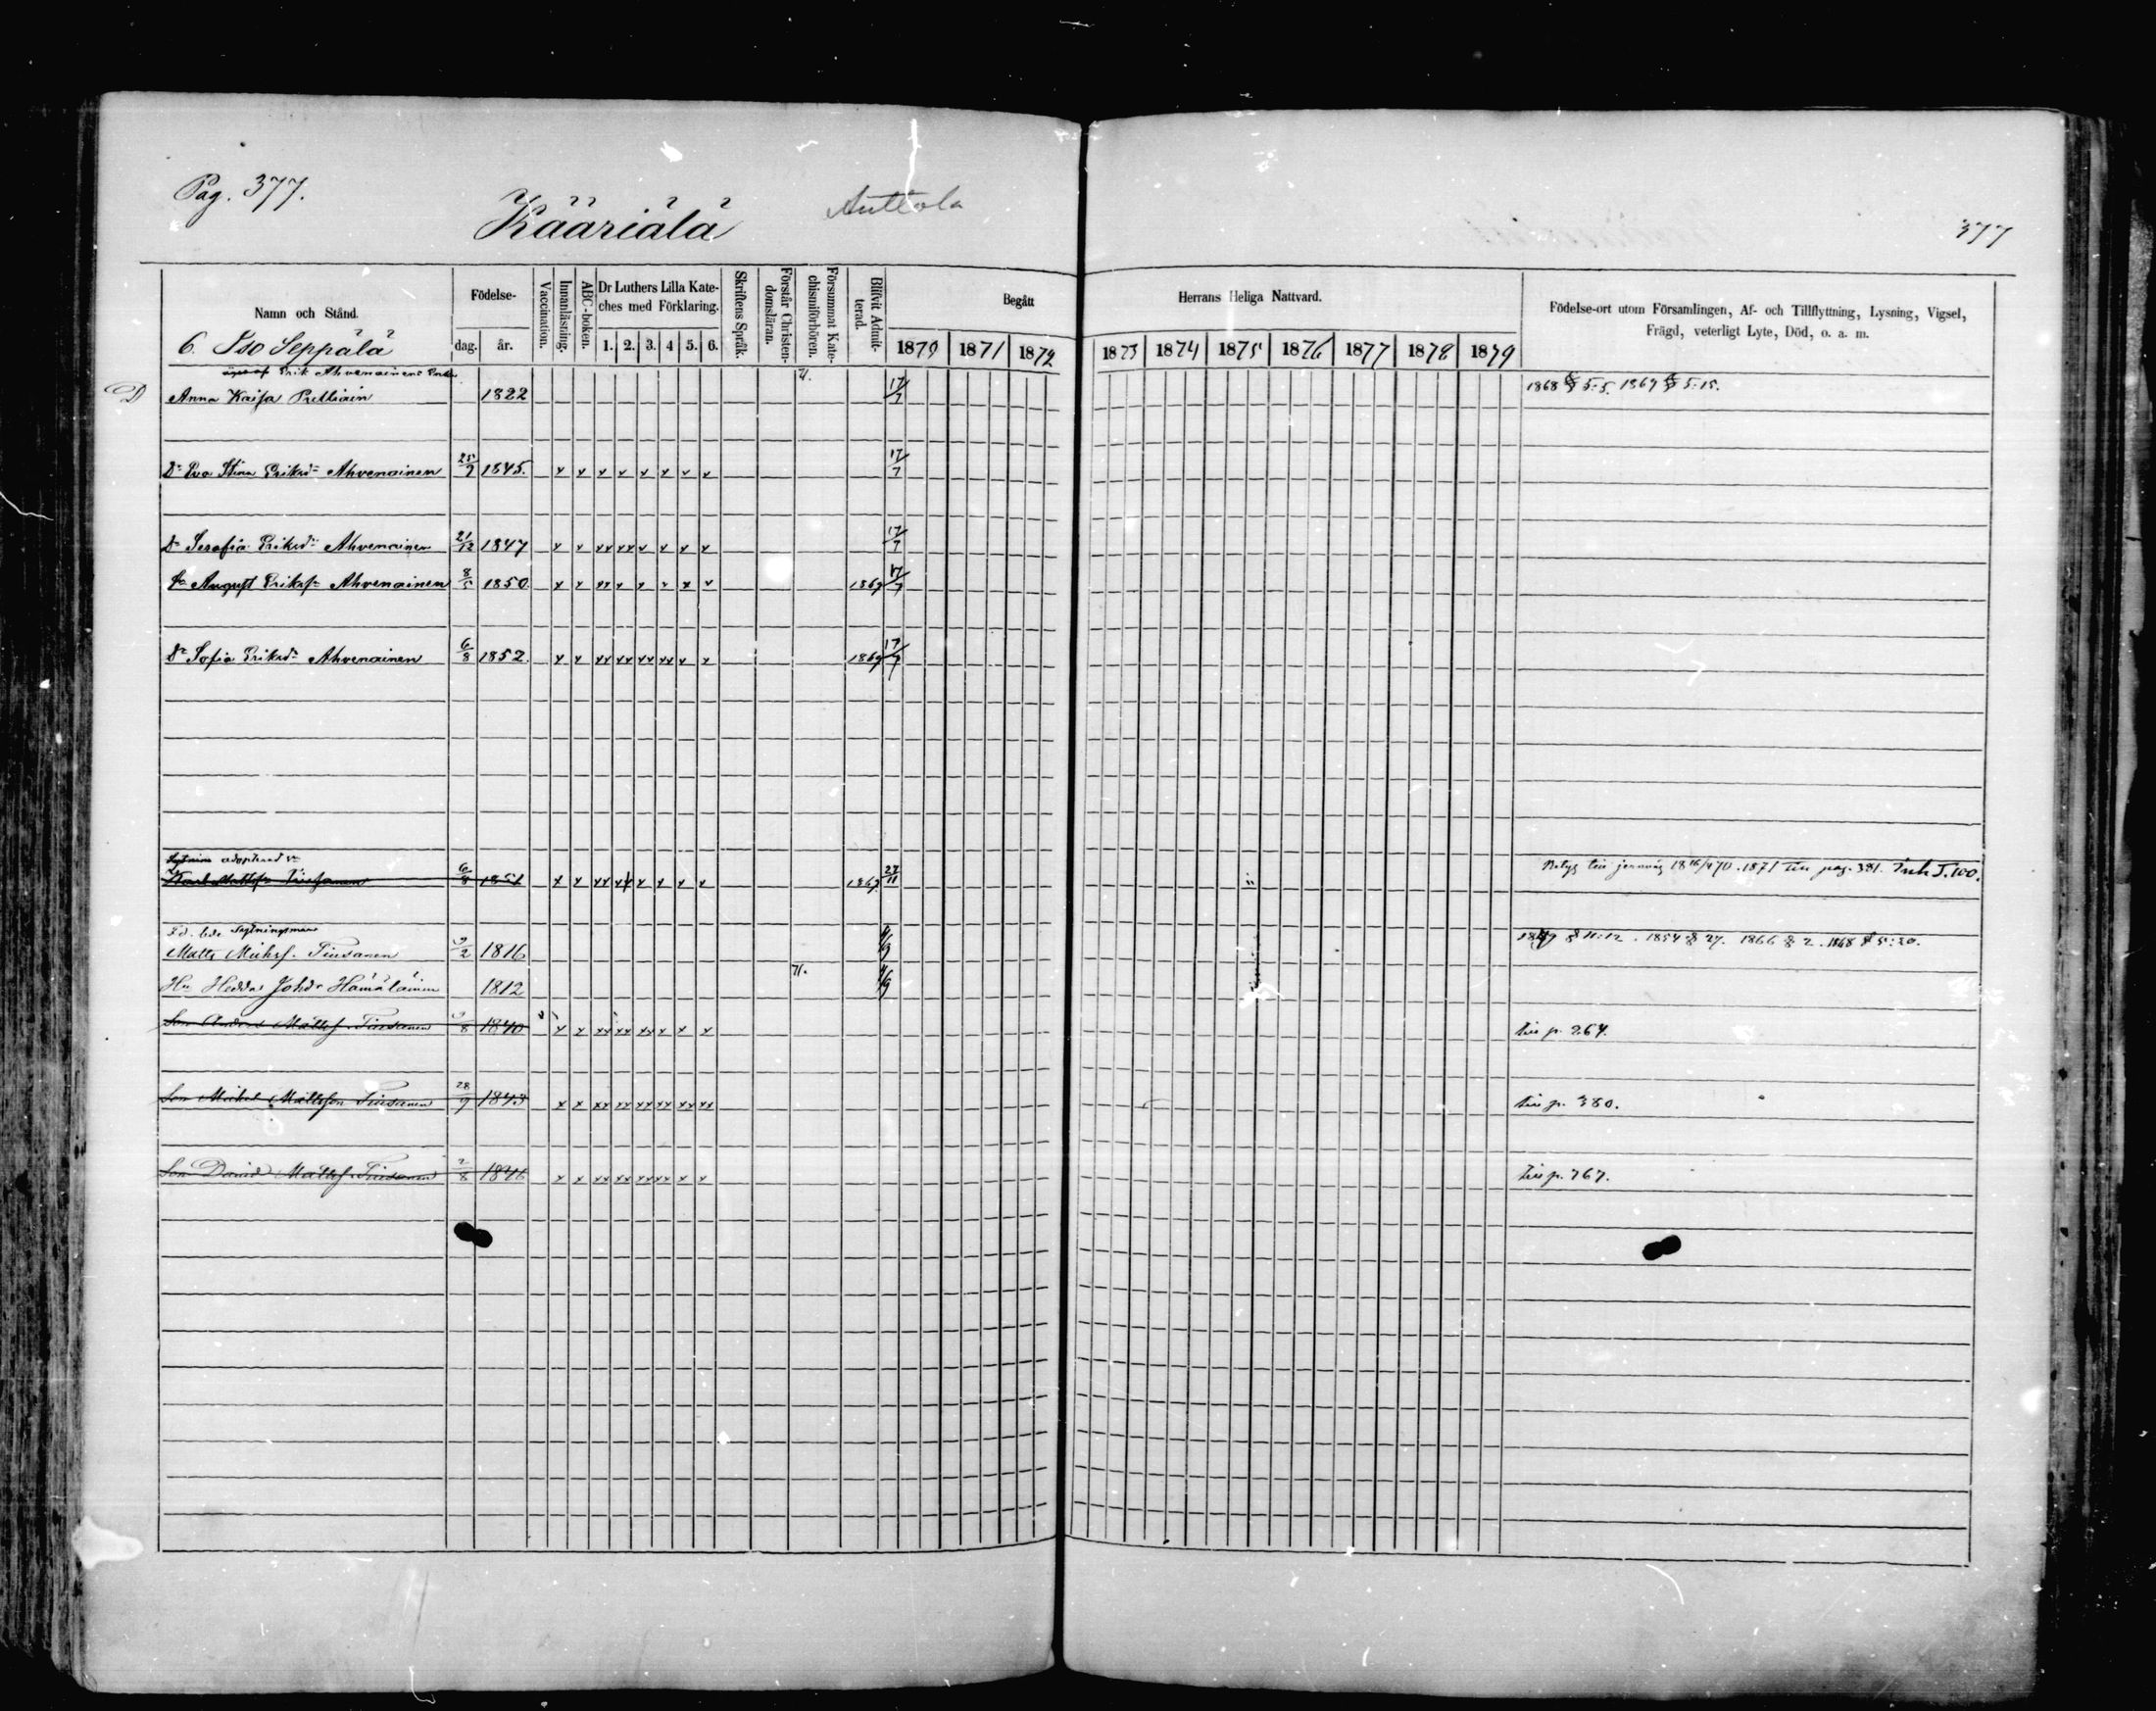 Pag. 377.
Kääriälä
Anttola
377
Namn och Stånd.
Födelse-
dag.
år.
Vaccination.
Innanläsning.
ABC-boken.
Dr Luthers Lilla Kate-
ches med Förklaring.
1. 2. 3. 4 5. 6.
Skriftens Språk.
Förstår Christen-
domsläran.
Försummat Kate-
chismiförhören.
Blifvit Admit-
terad.
Begått
Herrans Heliga Nattvard.
1870 1871 1872 1873 1874 1875 1876 1877 1878 1879
Födelse-ort utom Församlingen, Af- och Tillflyttning, Lysning, Vigsel,
Frägd, veterligt Lyte, Död, o. a. m.
6. Iso Seppälä
Erik Ahvenainens Enka
Anna Kaisa 1822 17/7 1868 § 5:5. 1869 § 5:15.
Dr Eva Stina Eriksdr Ahvenainen 25/7 1845. x x x x x x x x 17/7
Dr Serafia Eriksdr Ahvenainen 21/12 1847 x x xx xx x x x x 17/7
Sn August Eriksn Ahvenainen 8/5 1850 x x xx x x x x x 1869 17/7
Dr Sofia Eriksdr Ahvenainen 6/8 1852. x x xx xx xx xx x x 1869 17/7
adopterad
Karl Mattsn Tiusanen 6/8 1851 x x xx xx x x x x 1869 27/11 1871 till pag. 381.
Matts Michss. Tiusanen 9/2 1816 4/9 § 11:12. 1854 § 27. 1866 § 2. 1868 § 5:20.
Hu Hedda Johdr Hämäläinen 1812 4/9
Son Anders Mattss. Tiusanen 9/8 1840 x x xx xx xx x x x till p. 264.
Son Michel Mattsson Tiusanen 28/9 1843 x x xx xx xx xx xx xx till p. 380.
Son David Mattss. Tiusanen 2/8 1846 x x xx xx xx xx x x till p. 767.